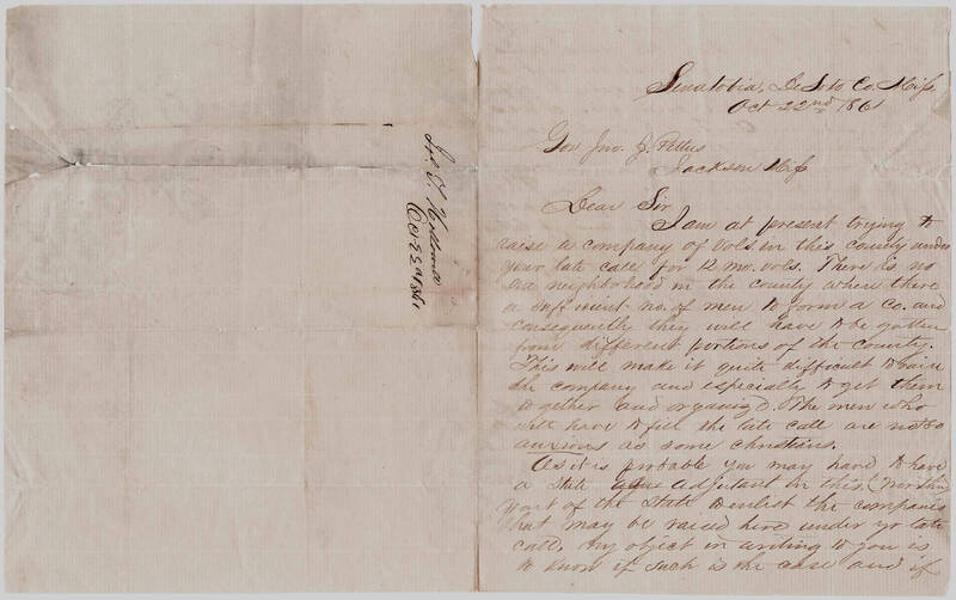 Senatobia, De Soto Co. Miss
Oct 22nd 1861
Gov Jno. J. Pettus
Jackson Miss
Dear Sir
I am at present trying to
raise a company of vols in this county under
your late call for 12 mo. vols. There is no
neighborhood in the county where there
a sufficient no. of men to form a Co. and
consequently they will have to be gotten
from different portions of the county.
This will make it quite difficult to raise
the company and especially to get them
together and organizd. The men who
will have to fill the late call are not so
anxious as some christians.
As it is probable you may have to have
a State adjutant in this (Northern)
part of the State to enlist the companies
that may be raised here under yr late
call, my object in writing to you is
to know if such is the case and if
Oct 22nd 1861